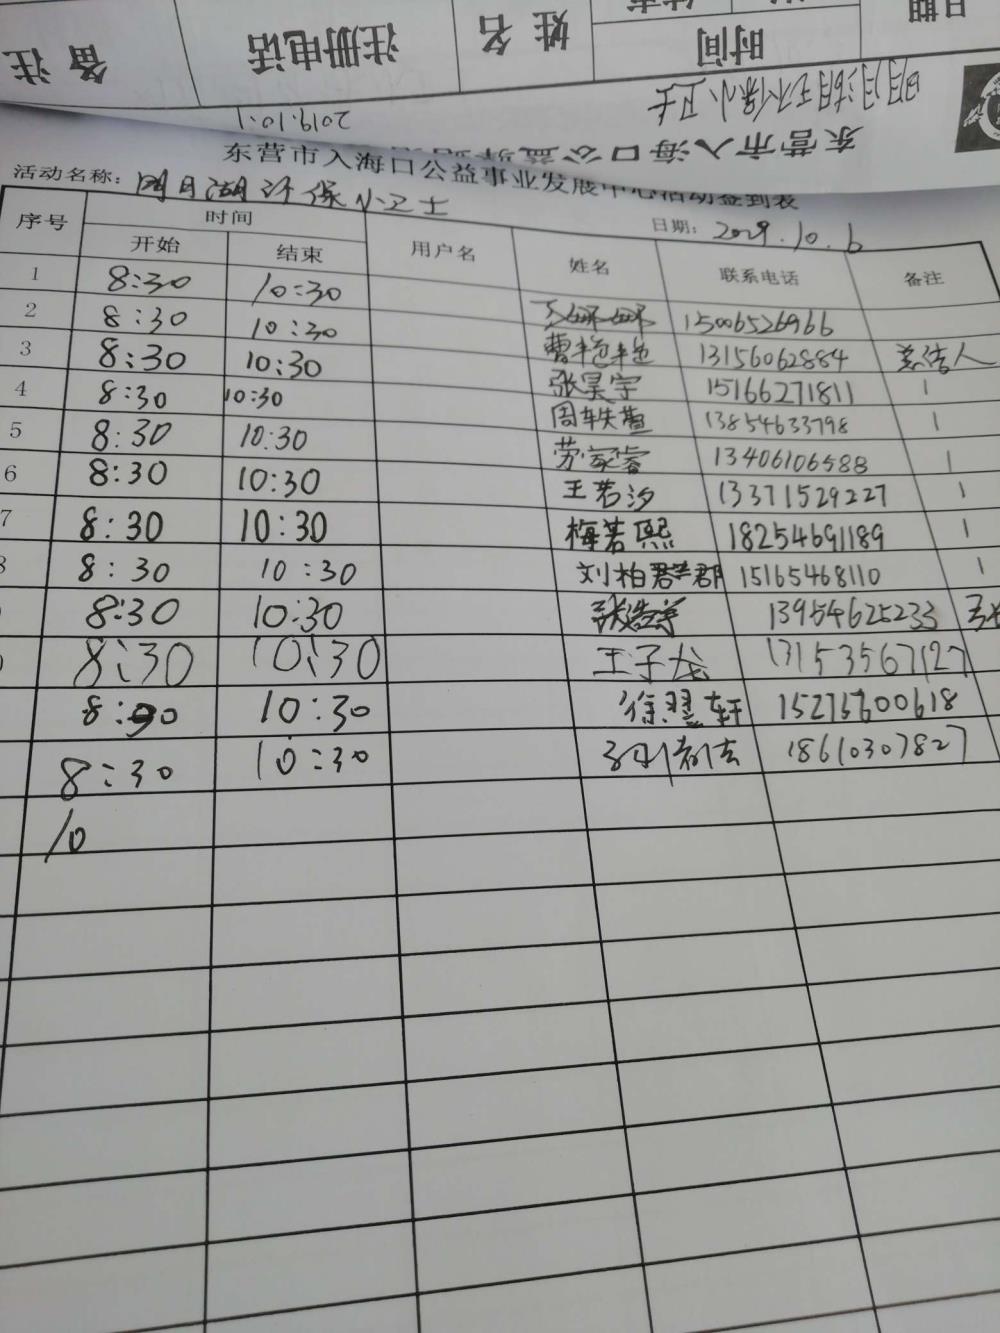 备注 注册电话 姓名 时间 日期
明月湖环保小卫士
2019.10.1
东营市入海口公益
东营市入海口公益事业发展中心活动签到表
活动名称：明月湖环保小卫士
日期：2019.10.6
序号 时间 用户名 姓名 联系电话 备注
开始 结束
1 8:30 10:30 15006526966
2 8:30 10:30 曹艳艳 13156062884
3 8:30 10:30 张昊宇 15166271811
4 8:30 10:30 周轶萱 13854633798
5 8:30 10:30 劳家睿 13406106588
6 8:30 10:30 王若汐 13371529227
7 8:30 10:30 梅若熙 18254691189
8 8:30 10:30 刘柏群郡 15165468110
8:30 10:30 13954625233
8:30 10:30 王子龙 13153567127
8:30 10:30 徐翌轩 15275600618
8:30 10:30 18610307827
10